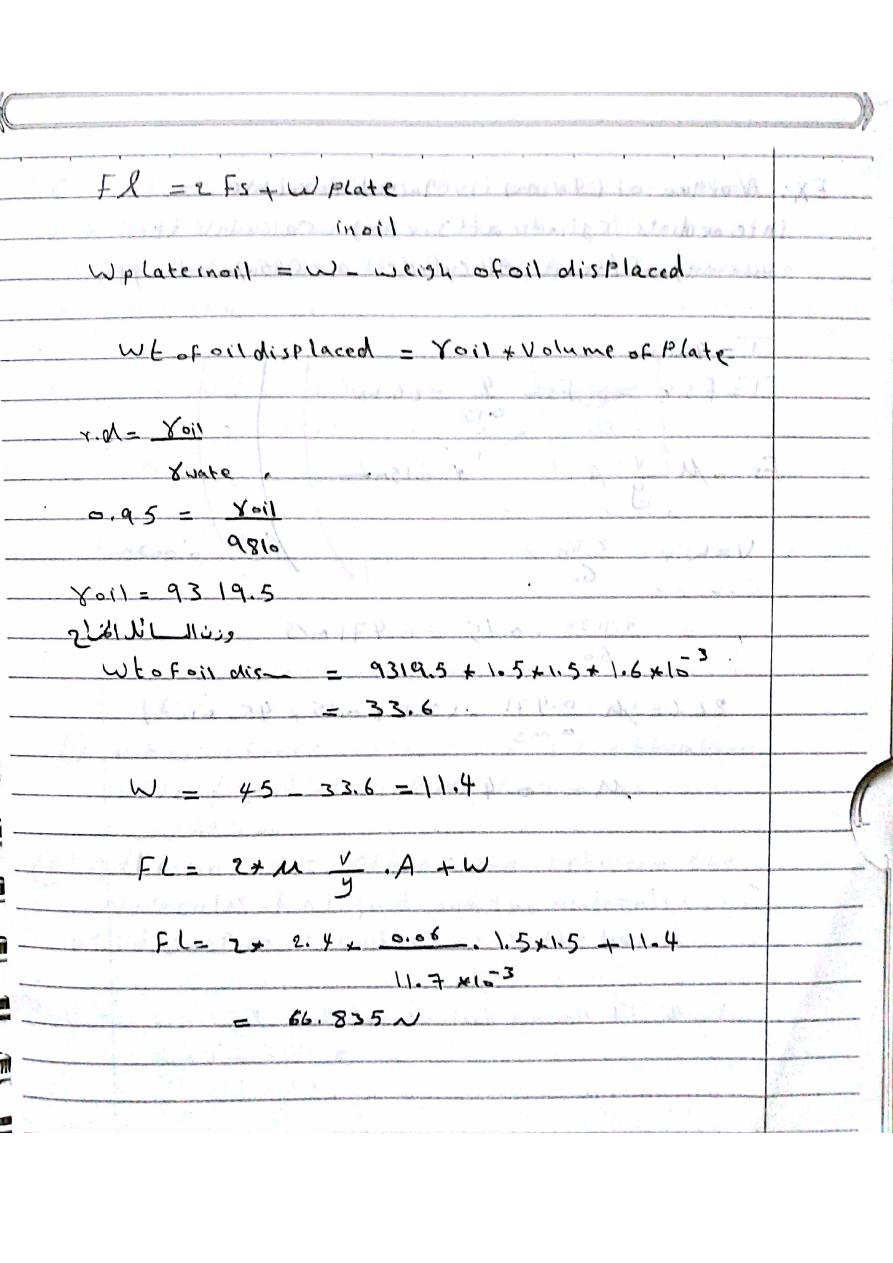 Fl = 2 Fs + W plate
in oil
W plate inoil = W - weigh of oil displaced
Wt of oil displaced = γoil * Volume of Plate
r.d = γoil
γwate
0.95 = γoil
9810
γoil = 9319.5
وزن السائل المزاح
Wt of oil dis = 9319.5 * 1.5 * 1.5 * 1.6 * 10⁻³
= 33.6
W = 45 - 33.6 = 11.4
FL = 2 * M V/y . A + W
Fl = 2 * 2.4 * 0.06 . 1.5 * 1.5 + 11.4
11.7 * 10⁻³
= 66.835 N